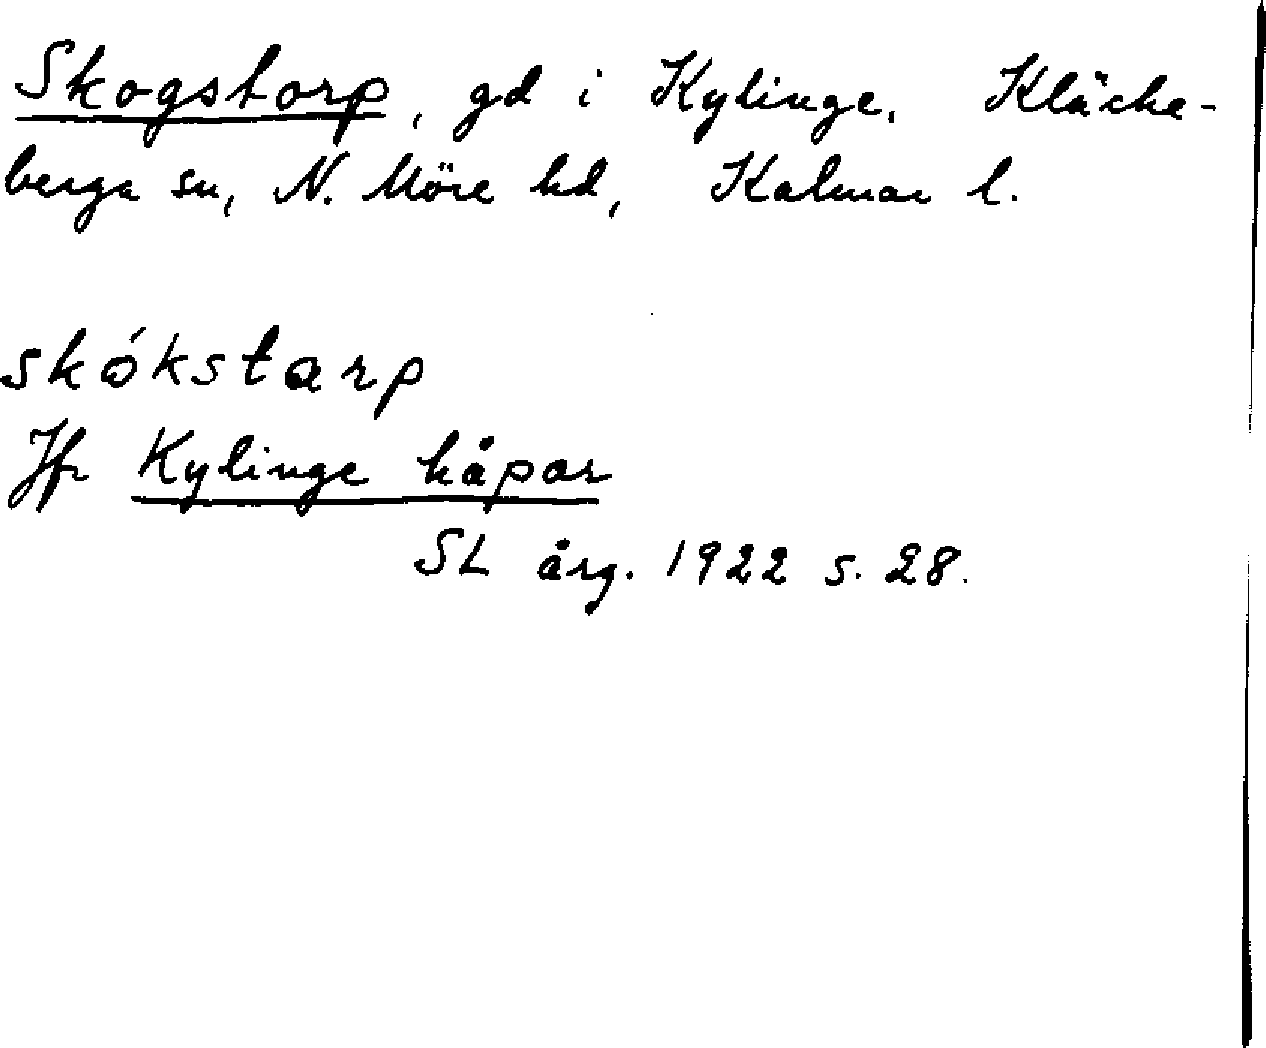 Skogstorp, gd i Kylinge, Kläcke-
berga sn, N. Möre hd, Kalmar l.
skókstarp
Jfr Kylinge håpar
SL årg. 1922 s. 28.